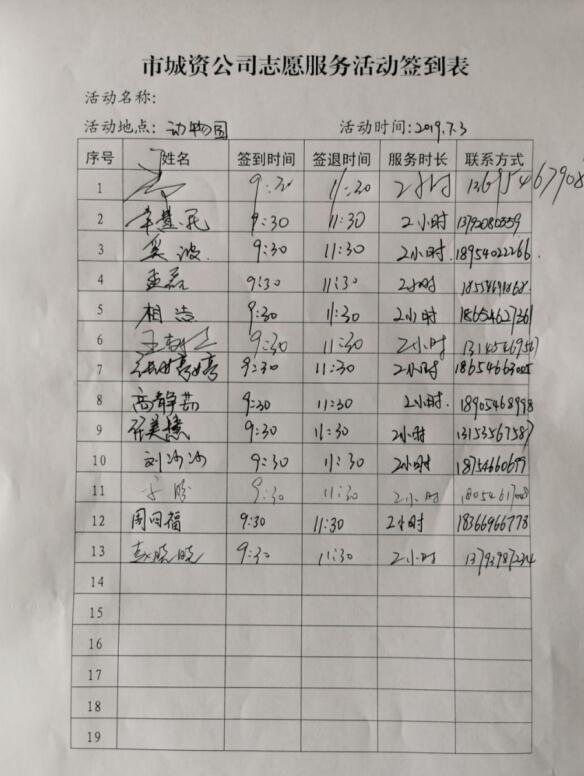 市城资公司志愿服务活动签到表
活动名称:
活动地点: 动物园 活动时间:2019.7.3
序号 姓名 签到时间 签退时间 服务时长 联系方式
1 9:30 11:30 2小时 13695467908
2 9:30 11:30 2小时
3 吴波 9:30 11:30 2小时 18954022266
4 孟磊 9:30 11:30 2小时
5 相浩 9:30 11:30 2小时 18654627361
6 9:30 11:30 2小时
7 9:30 11:30 2小时 18654663005
8 高静茹 9:30 11:30 2小时 18905468998
9 9:30 11:30 2小时 13153567587
10 刘沙沙 9:30 11:30 2小时 18754660677
11 9:30 11:30 2小时
12 周同福 9:30 11:30 2小时 18366966778
13 赵晓晓 9:30 11:30 2小时
14
15
16
17
18
19